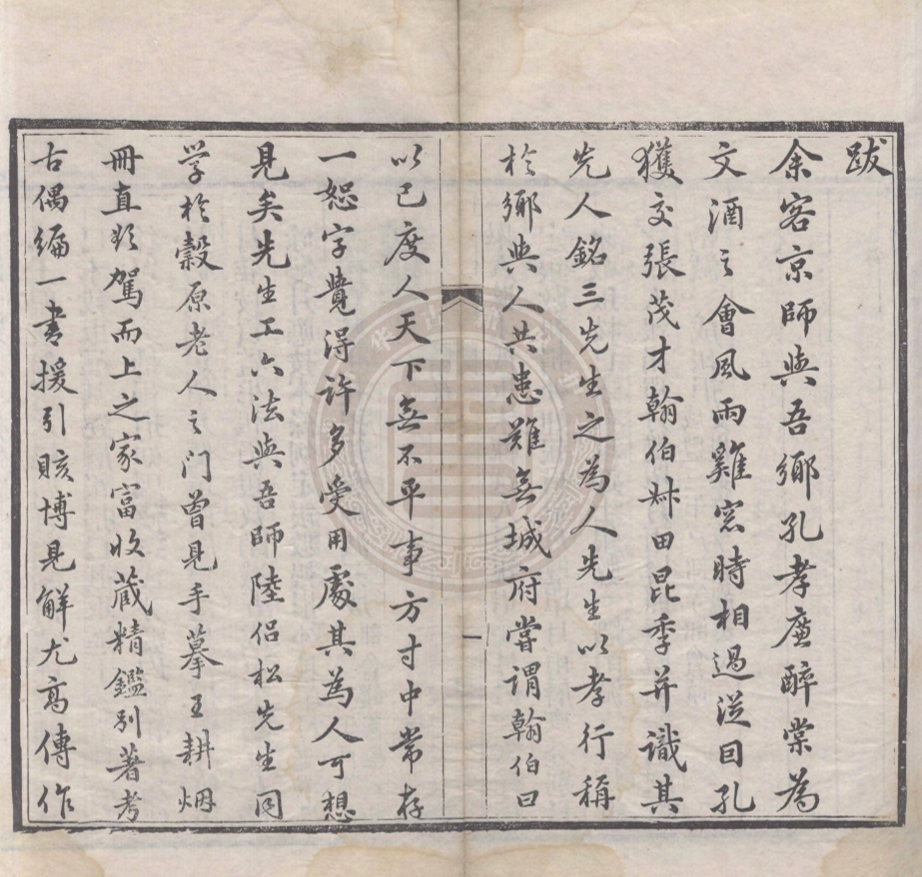 跋
余客京師與吾鄉孔孝廉醉棠為
文酒之會風雨雞窓時相過從因孔
獲交張茂才翰伯尗田昆季并識其
先人銘三先生之為人先生以孝行稱
於鄉與人共患難無城府嘗謂翰伯曰
一
以己度人天下無不平事方寸中常存
一恕字覺得許多受用處其為人可想
見矣先生工六法與吾師陸侶松先生同
学於穀原老人之门曾見手摹王耕烟
冊直欲駕而上之家富收藏精鑑別著考
古偶編一書援引賅博見解尤高傳作